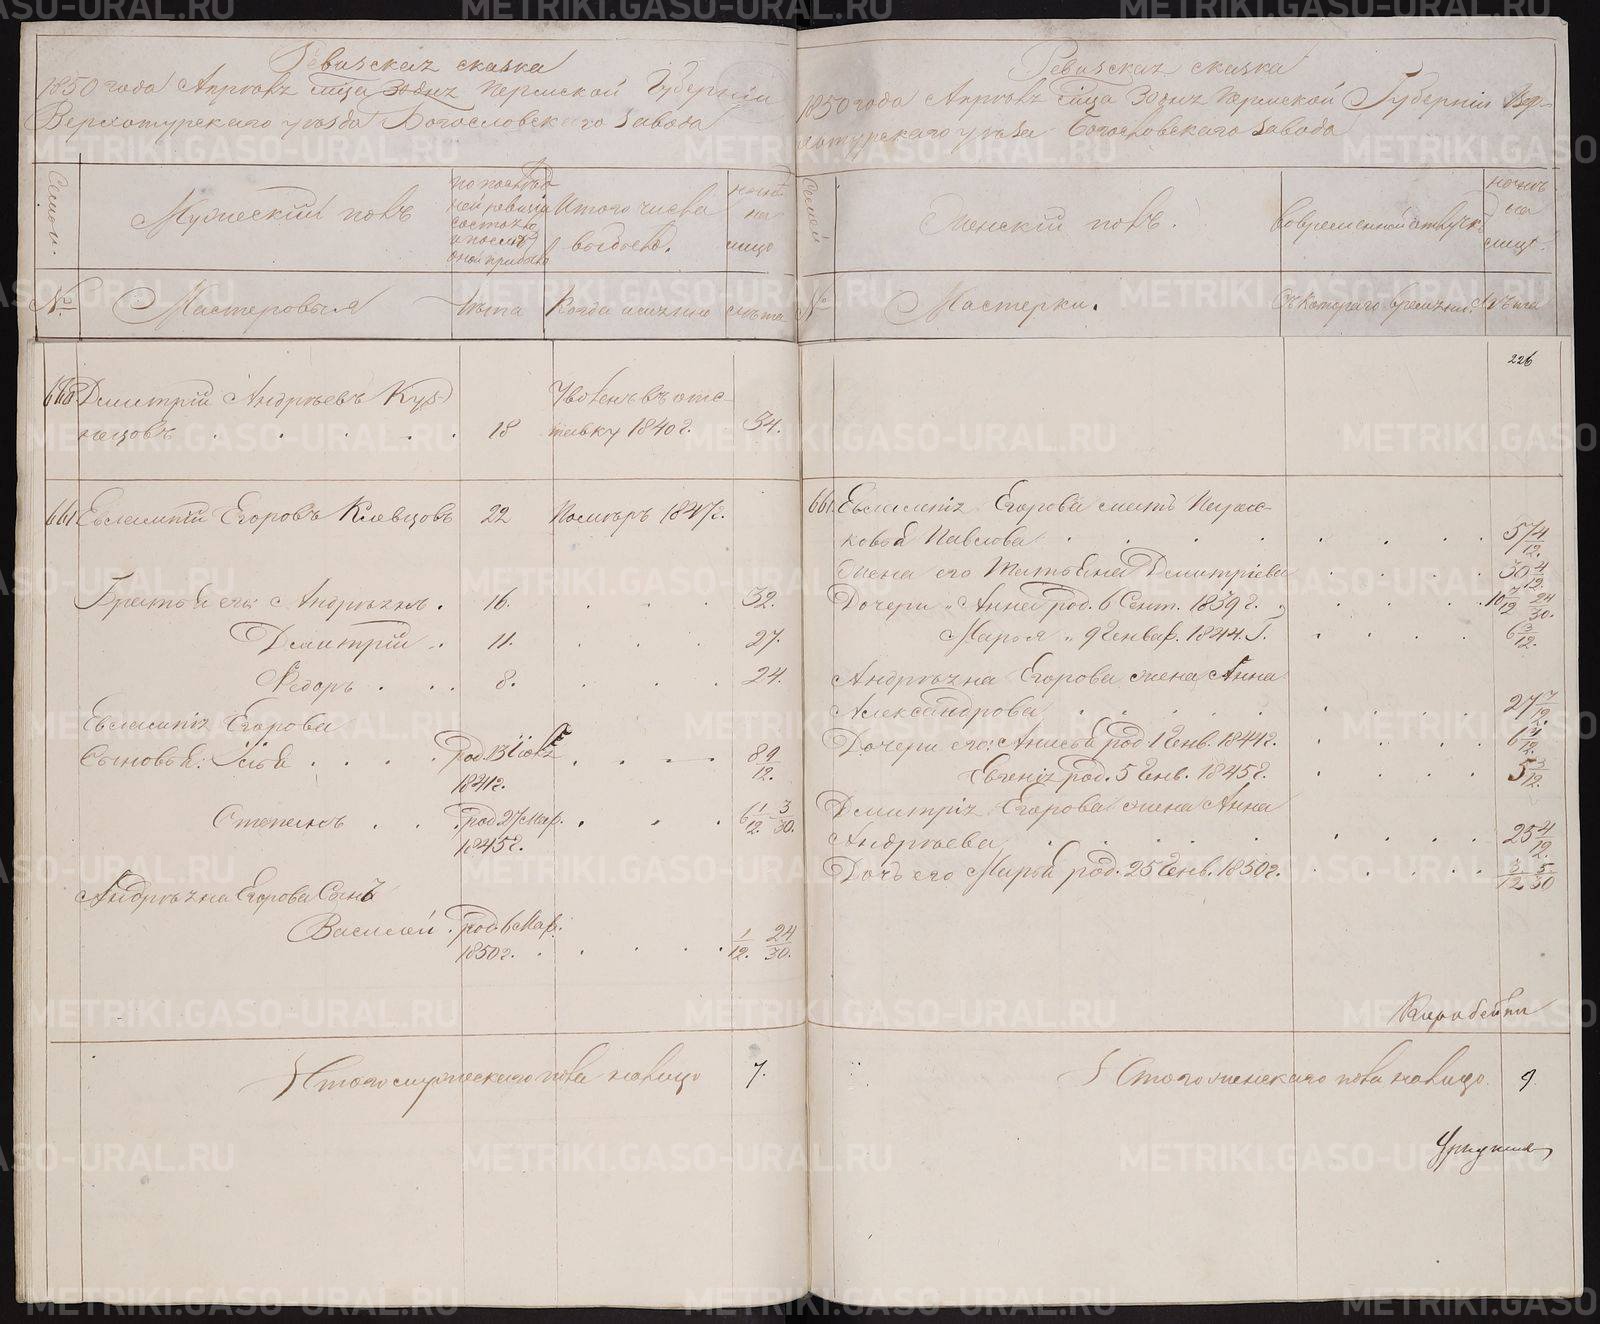 Ревизская сказка
1850 года Апреля м͠ца 30 дня Пермской Губерніи
Верхотурскаго уѣзда Богословскаго завода
Семьи.
Мужескій полъ
по послѣд
ней ревизіи
состояло
и послѣ
оной прибыло
Изтого числа
выбыло.
нынѣ
на
лицо
№
Мастеровыя
Лѣта
Когда именно
лѣта
660 Дмитрій Андреевъ Куз-
нецовъ . . . . . 18
Уволенъ въ отс-
тавку 1840 г. 34.
661 Евлампій Егоровъ Клевцовъ 22 Помѣръ 1847 г.
Братья его: Андреянъ . 16. . . . 32.
Дмитрій . 11. . . . 27.
Федоръ . . . 8. . . . 24.
Евлампія Егорова
Сыновья: Илья . . . . род. 13 Іюля . . . . 8 9/12.
1841 г.
Степанъ . . . род 27 Мар. . . . 6 1/12. 3/30.
1845 г.
Андреяна Егорова Сынъ
Василій . род 6 Мар.
1850 г. . . . . . 1/12. 24/30.
Итого мужескаго пола налицо 7.
Ревизская сказка
1850 года Апреля м͠ца 30 дня Пермской Губерніи Вер-
хотурскаго уѣзда Богословскаго завода
Семьи
Женскій полъ.
Вовременной отлучкѣ
нынѣ
на
лицо.
№
Мастерки.
Съ котораго времени.
Лѣта
226
661 Евлампія Егорова мать Парас-
ковья Павлова . . . . . . . 57 4/12.
Жена его Татьяна Дмитріева . . . . 30 4/12.
Дочери: Анна род. 6 Сент. 1839 г. . . . . . 10 7/12 24/30.
Марья " 9 Генвар. 1844 г. . . . . 6 3/12.
Андреяна Егорова жена Анна
Александрова . . . . . . . 27 7/12.
Дочери его: Анисья род 1 Генв. 1844 г. . . . . 6 4/12.
Евгенія род. 5 Генв. 1845 г. . . . . 5 3/12.
Дмитрія Егорова жена Анна
Андреева . . . . . . . 25 4/12.
Дочь его Марья род. 25 Генв. 1850 г. . . . . . 3/12. 5/30
Итого женскаго пола налицо. 9.
METRIKI.GASO-URAL.RU